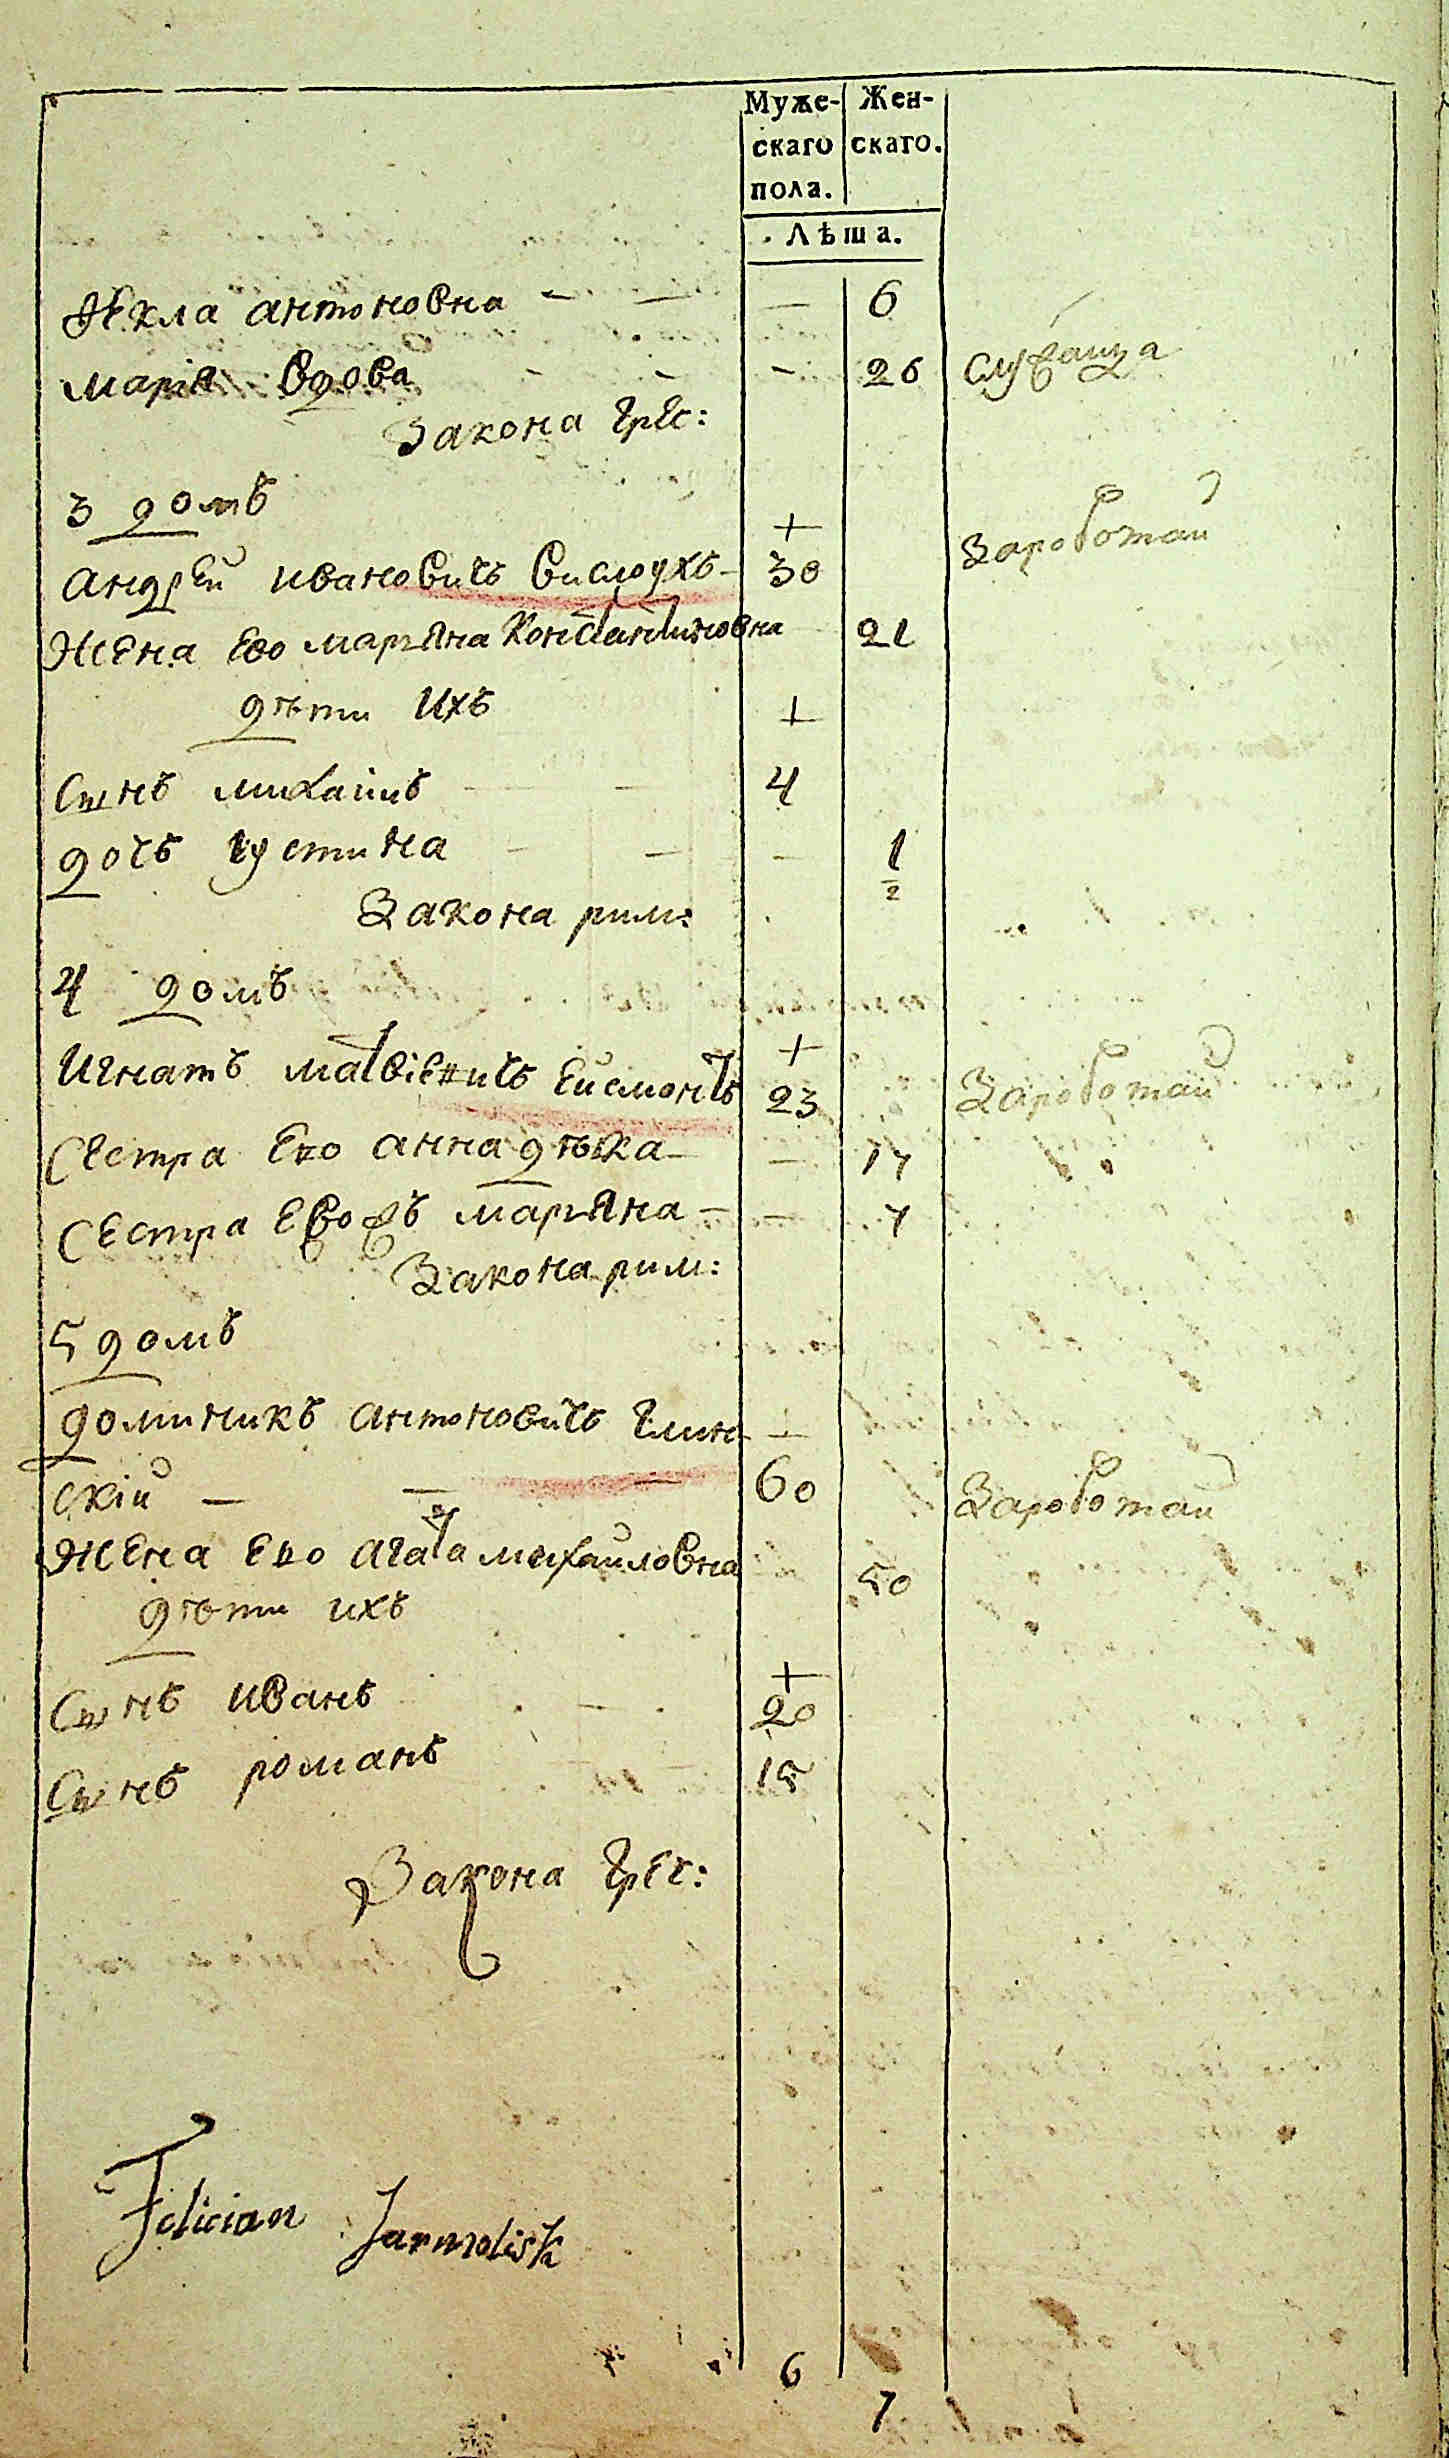 Муже- Жен-
скаго скаго.
пола.
Лѣта.
Текла антоновна — — — 6
мария вдова - - - 26 служаща
Закона грес:
3 домъ
+
андрей ивановичъ вислоухъ — 30 Зароботай
Жена Ево марьяна Константиновна 21
дѣти ихъ +
Сынъ михаилъ — — 4
дочь Iустина — — — 1/2
Закона рим:
4 домъ
+
Игнатъ матвіевичъ Еисмонтъ 23 Зароботай
Сестра Ево анна дѣвка — — 17
Сестра Ево ж марьяна — — 7
Закона рим:
5 домъ
доминикъ антоновичъ глин- +
скій — — — 60 Зароботай
Жена Ево агата михайловна 50
дѣти ихъ
+
Сынъ иванъ — 20
Сынъ романъ 15
Закона грес:
Felician Jarmolisk
6
7